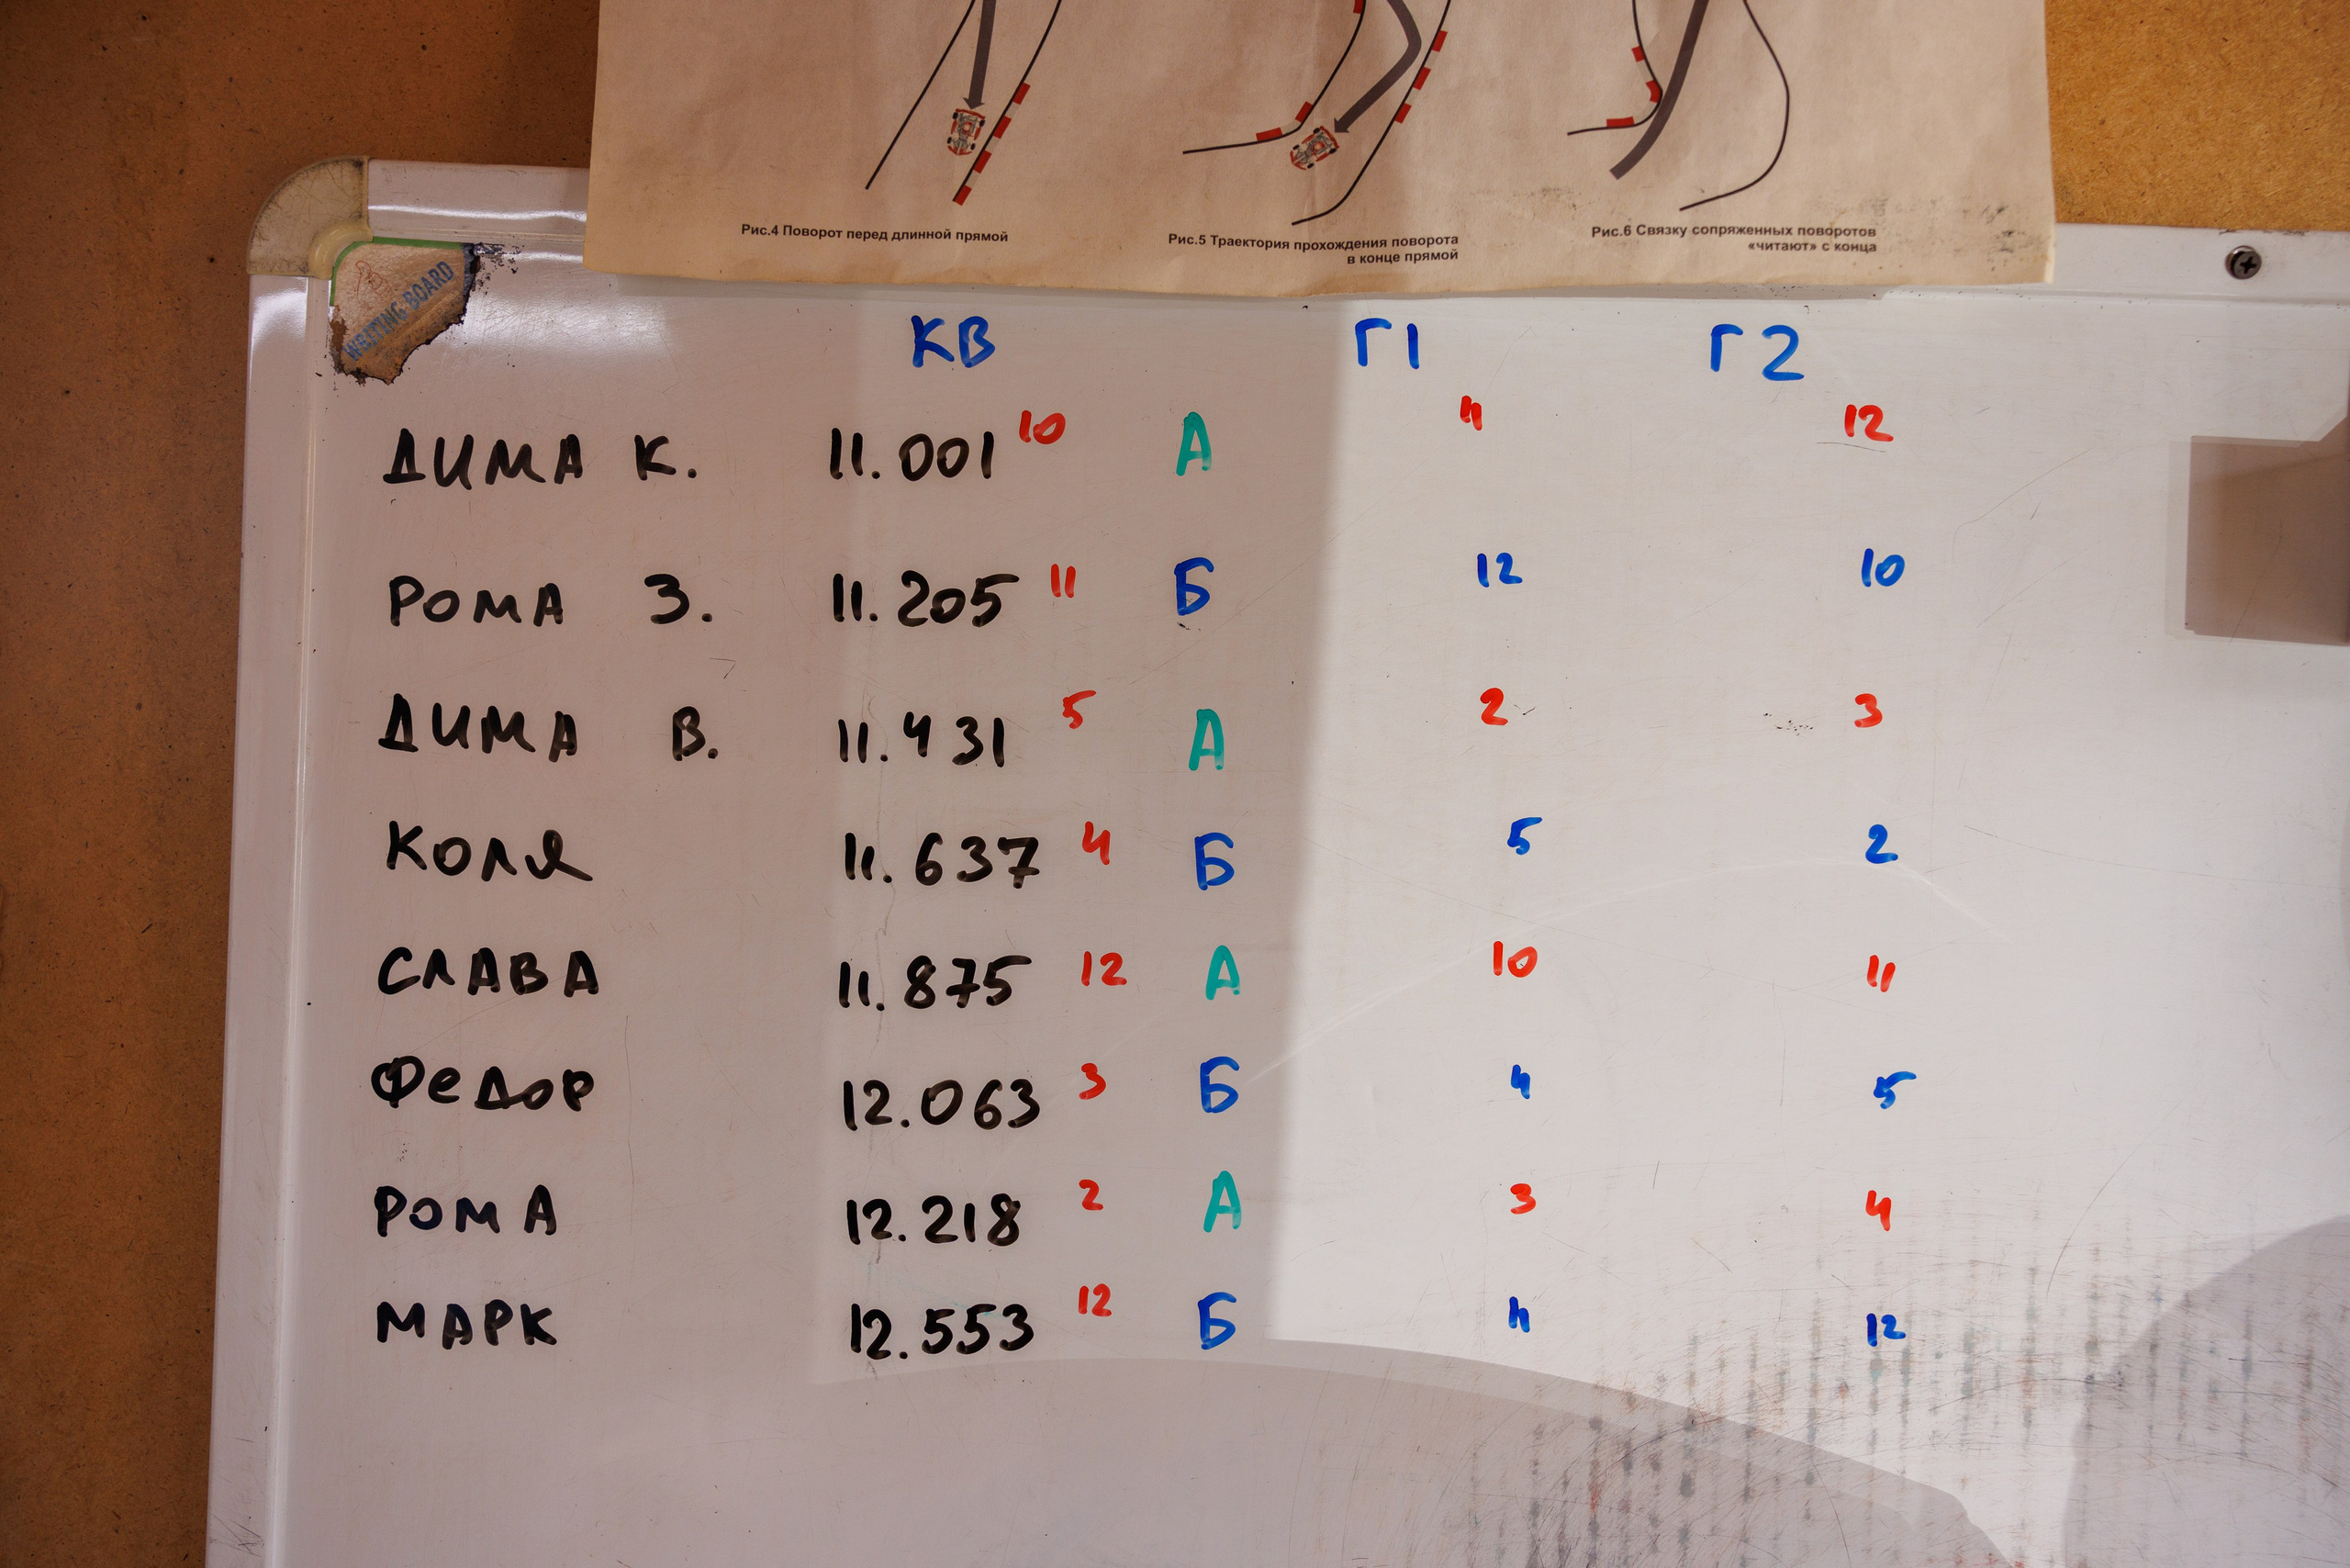 Рис.4 Поворот перед длинной прямой
Рис.5 Траектория прохождения поворота
в конце прямой
Рис.6 Связку сопряженных поворотов
«читают» с конца
WRITING-BOARD
КВ Г1 Г2
ДИМА К. 11.001 10 А 4 12
РОМА З. 11.205 11 Б 12 10
ДИМА В. 11.431 5 А 2 3
КОЛЯ 11.637 4 Б 5 2
СЛАВА 11.875 12 А 10 11
ФЕДОР 12.063 3 Б 4 5
РОМА 12.218 2 А 3 4
МАРК 12.553 12 Б 11 12